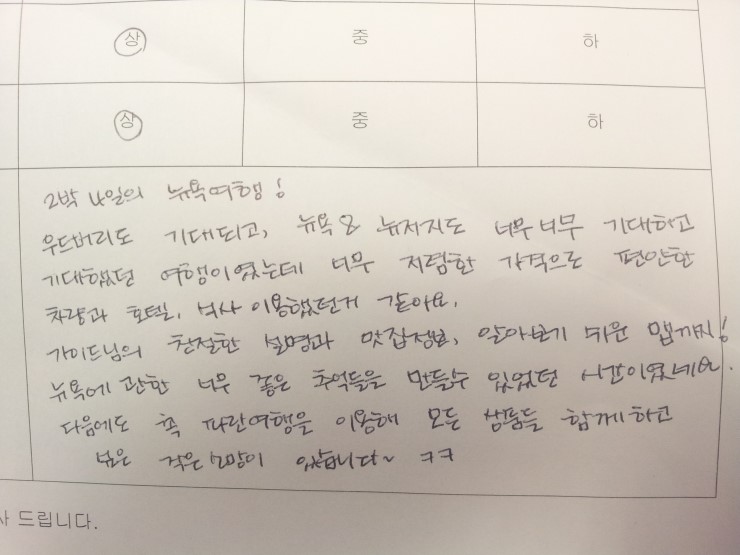 상 중 하
상 중 하
2박 4일의 뉴욕여행!
우드버리도 기대되고, 뉴욕 & 뉴저지도 너무너무 기대하고
기대했었던 여행이였는데 너무 저렴한 가격으로 편안한
차량과 호텔, 식사 이용했었던거 같아요.
가이드님의 친절한 설명과 맛집정보, 알아보기 쉬운 맵까지!
뉴욕에 관한 너무 좋은 추억들을 만들수 있었던 시간이였네요.
다음에도 꼭 파란여행을 이용해 모든 상품들 함께하고
싶은 작은 소망이 있습니다~ ㅋㅋ
드립니다.